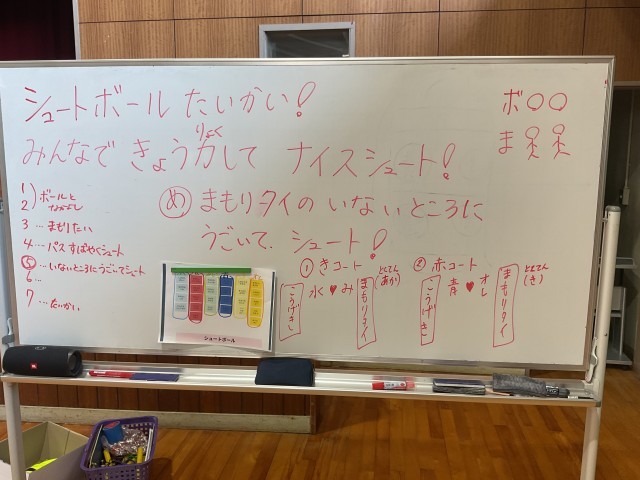 シュートボール たいかい!
みんなで きょう力して ナイスシュート!
りょく
ボ○○
ま
め まもりタイの いないところに
うごいて、シュート!
1) ボールと
2) なかよし
3 … まもりたい
4 … パスすばやくシュート
⑤ … いないところにうごいてシュート
6 …
7 … たいかい
シュートボール
① きコート
こうげき 水♥み まもりタイ とくてん(あか)
② 赤コート
こうげき 青♥オレ まもりタイ とくてん(き)
JBL